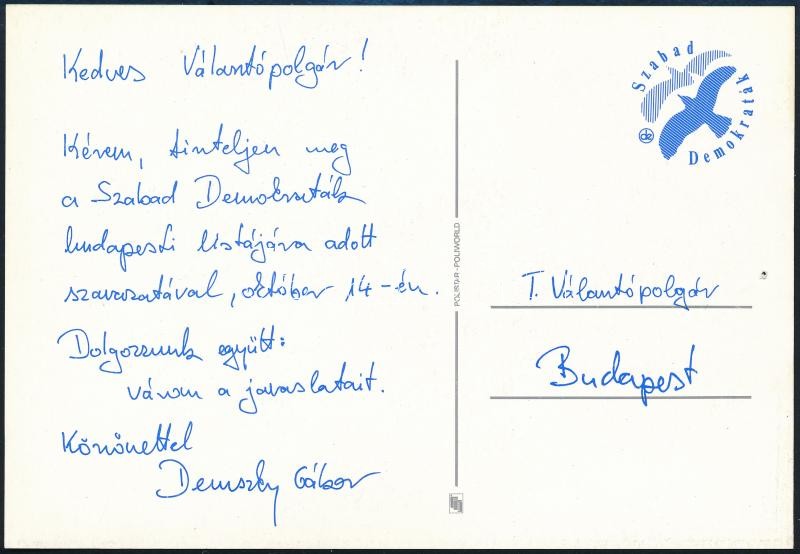 Kedves Választópolgár!
Kérem, tiszteljen meg
a Szabad Demokraták
budapesti listájára adott
szavazatával, október 14-én.
Dolgozzunk együtt:
várom a javaslatait.
Köszönettel
Demszky Gábor
POLISTAR-POLIWORLD
Szabad
Demokraták
T. Választópolgár
Budapest